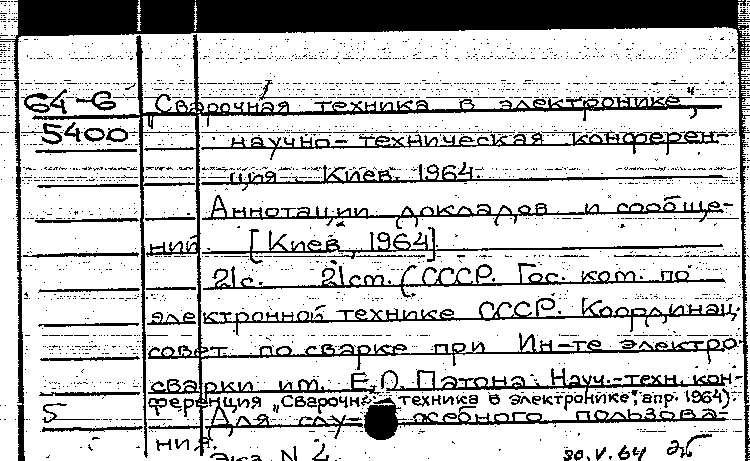 64-6 „Сварочная техника в электронике",
5400 научно-техническая конферен-
ция. Киев. 1964.
Аннотации докладов и сообще-
ний. [Киев, 1964]
21с. 21см. (СССР. Гос. ком. по
электронной технике СССР. Координац.
совет по сварке при Ин-те электро-
сварки им. Е.О. Патона. Науч.-техн. кон-
ференция „Сварочн техника в электронике", апр. 1964).
5 Для слу- жебного пользова-
ния.
Экз. N 2. 30.V.64